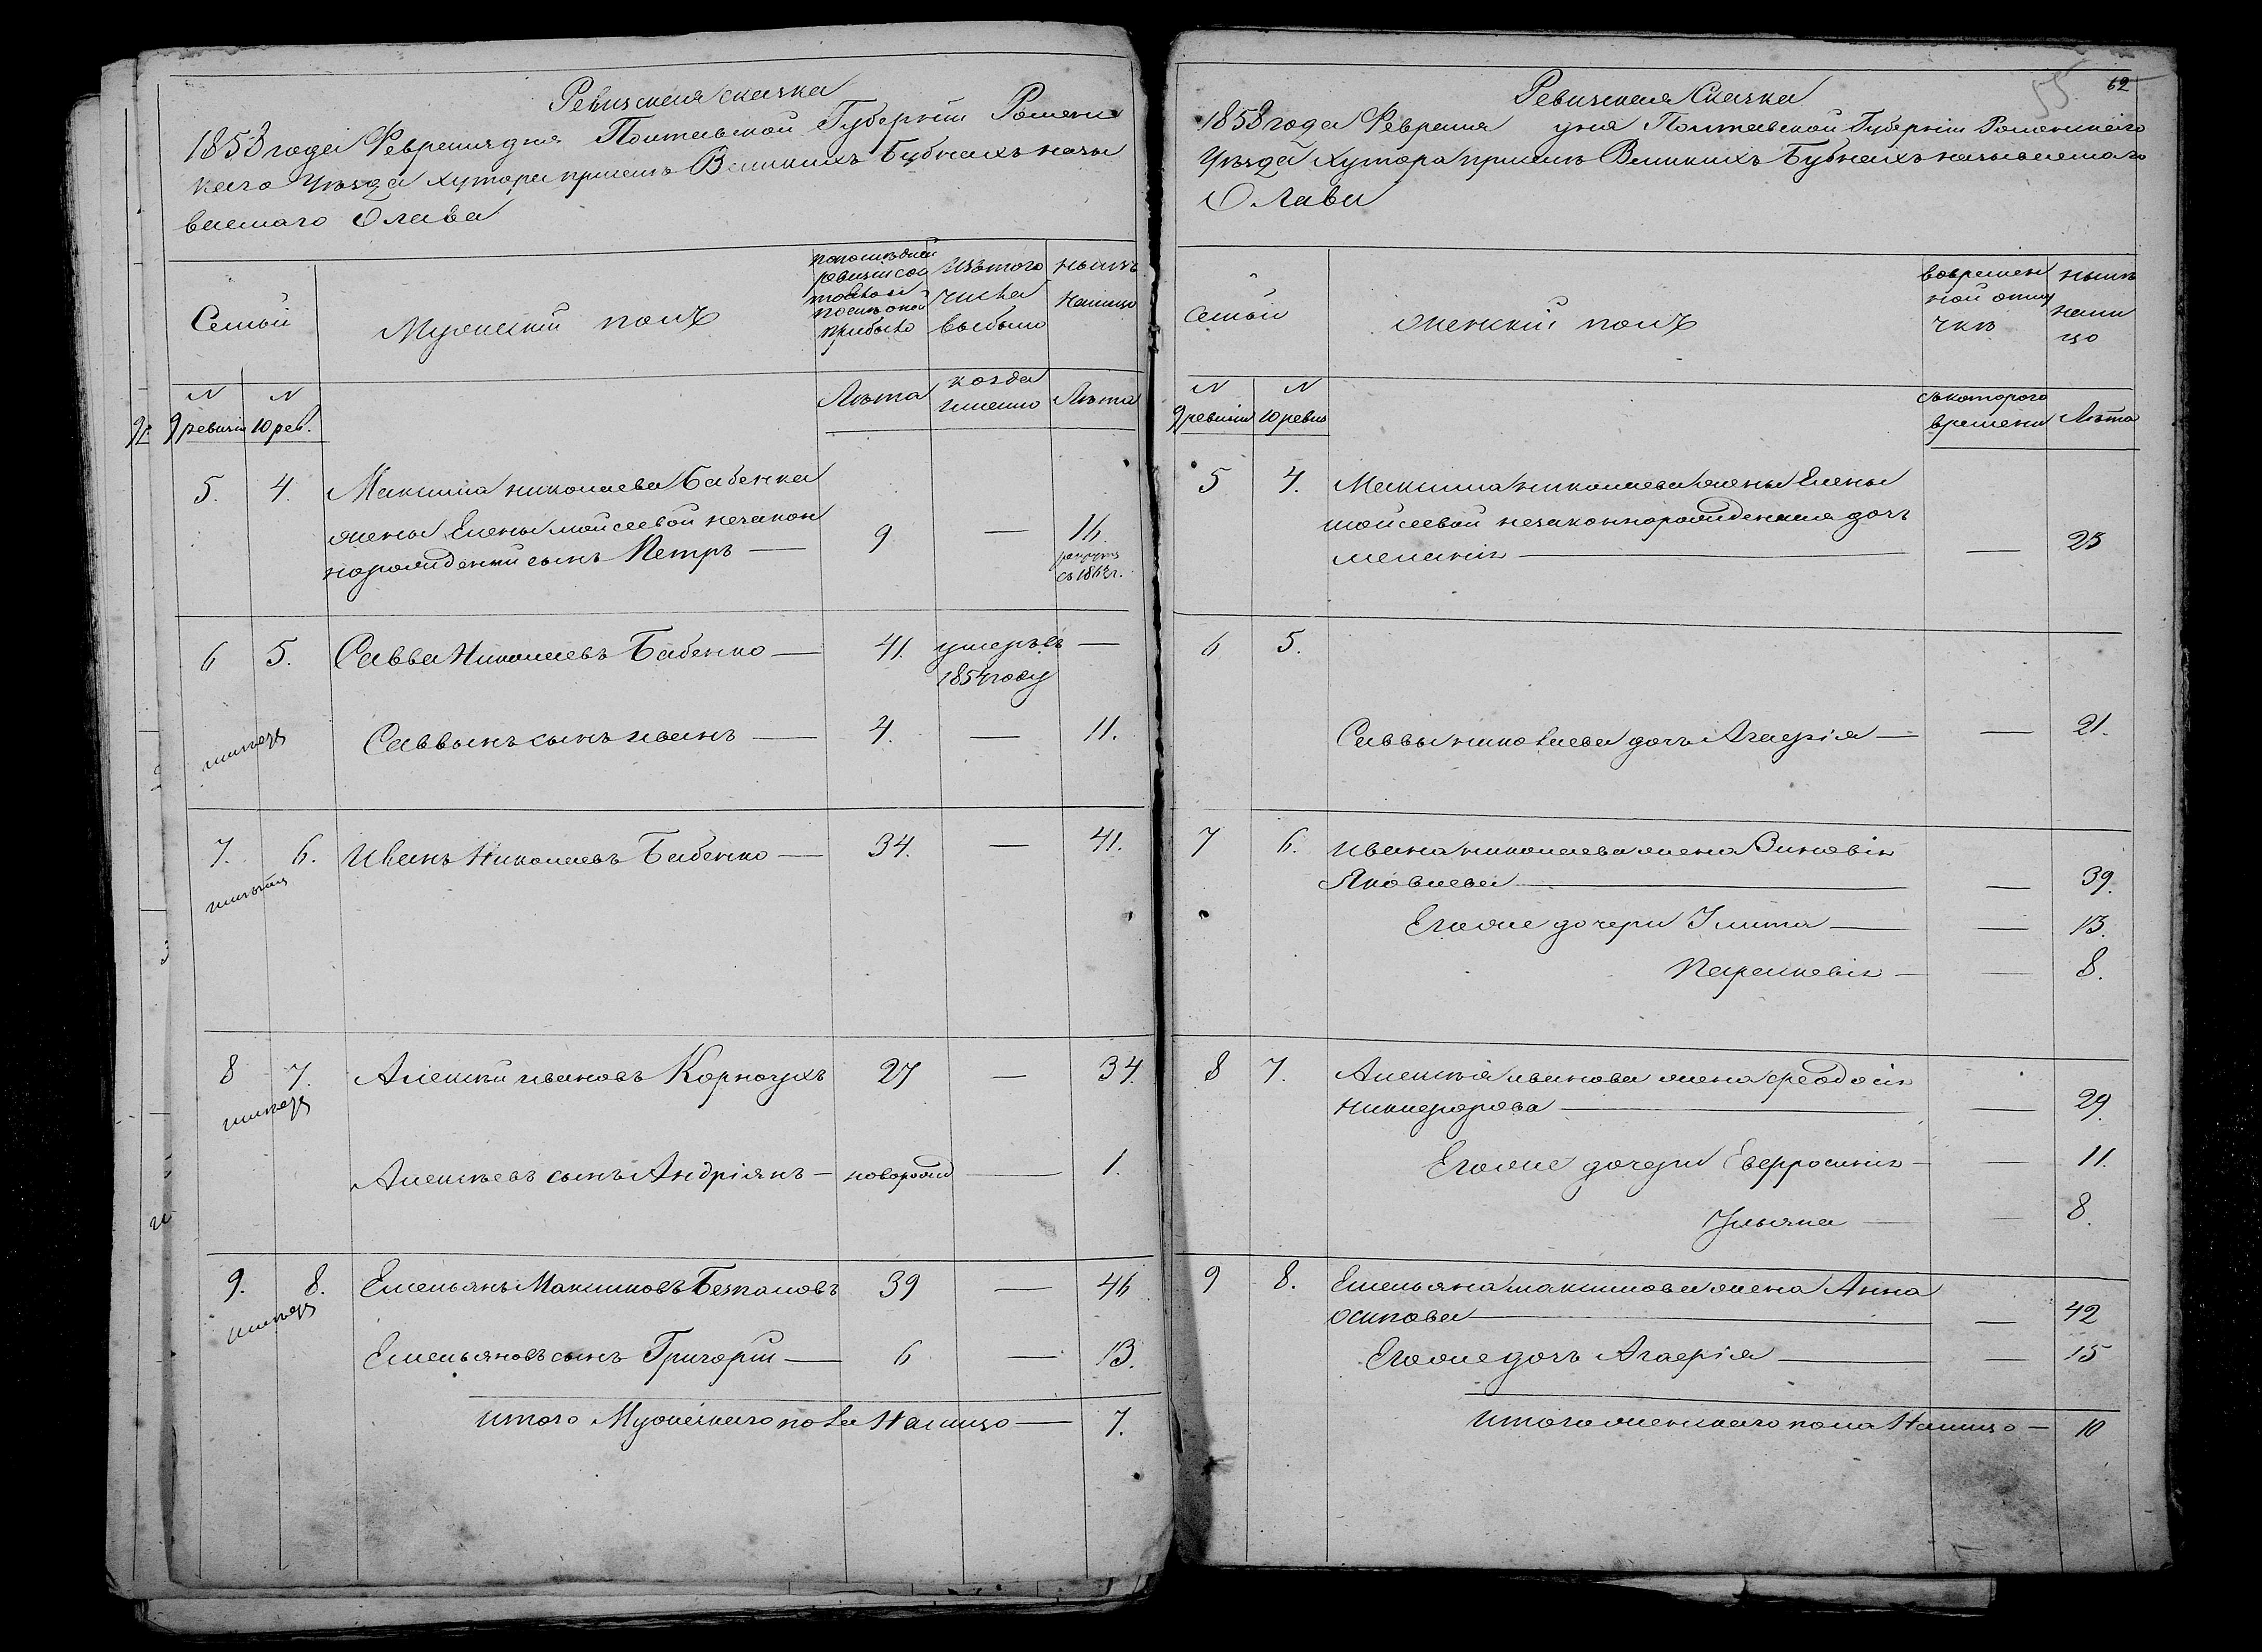 Ревизская сказка
1858 года Февраля дня Полтавской Губернiи Роменс
каго Уѣзда хутора при селѣ Великихъ Бубнахъ назы
ваемаго Олава
Семьи
Мужескiй полъ
по последней
ревизiи со
стояло и
после оной
прибыло
Изъ того
числа
выбыло
нынѣ
налицо
N
9 ревизiи
N
10 рев.
Лѣта
когда
именно
Лѣта
5. 4. Максима николаева Бабенка
жены Елены мойсеевой незакон
норожденный сынъ Петръ — 9 — 16.
рекрутъ
съ 1863 г.
6 5. Савва Николаевъ Бабенко — 41. умеръ въ —
1854 году
Саввынъ сынъ иванъ — 4. — 11.
7. 6. Иванъ Николаевъ Бабенко — 34. — 41.
8 7. Алексѣй ивановъ Корноухъ 27 — 34.
Алексѣевъ сынъ Андрiянъ — новорожд — 1.
9. 8. Емельянъ Максимовъ Безпаловъ 39 — 46
Емельяновъ сынъ Григорiй — 6 — 13.
итого Мужескаго пола Налицо — 7.
55 62
Ревизская Сказка
1858 года Февраля дня Полтавской Губернiи Роменскаго
Уѣзда хутора при селѣ Великихъ Бубнахъ называемаго
Олава
Семьи
женскiй полъ
во времен
ной отлу
чкѣ
нынѣ
нали
цо
N
9 ревизiи
N
10 ревиз
съ котораго
времени
Лѣта
5 4. Максима николаева жены Елены
мойсеевой незаконнорожденная дочь
меланiя — — 25
6 5.
Саввы николаева дочь Агафiя — — 21.
7 6. ивана николаева жена Зиновiя
Яковлева — — 39.
Его же дочери Улита — — 13.
Параскевiя — — 8.
8 7. Алексѣя иванова жена феодосiя
никифорова — — 29.
Его же дочери Евфросинiя — — 11.
Ульяна — — 8.
9 8. Емельяна максимова жена Анна
осипова — — 42
Его же дочь Агафiя — — 15
итого женскаго пола Налицо — 10